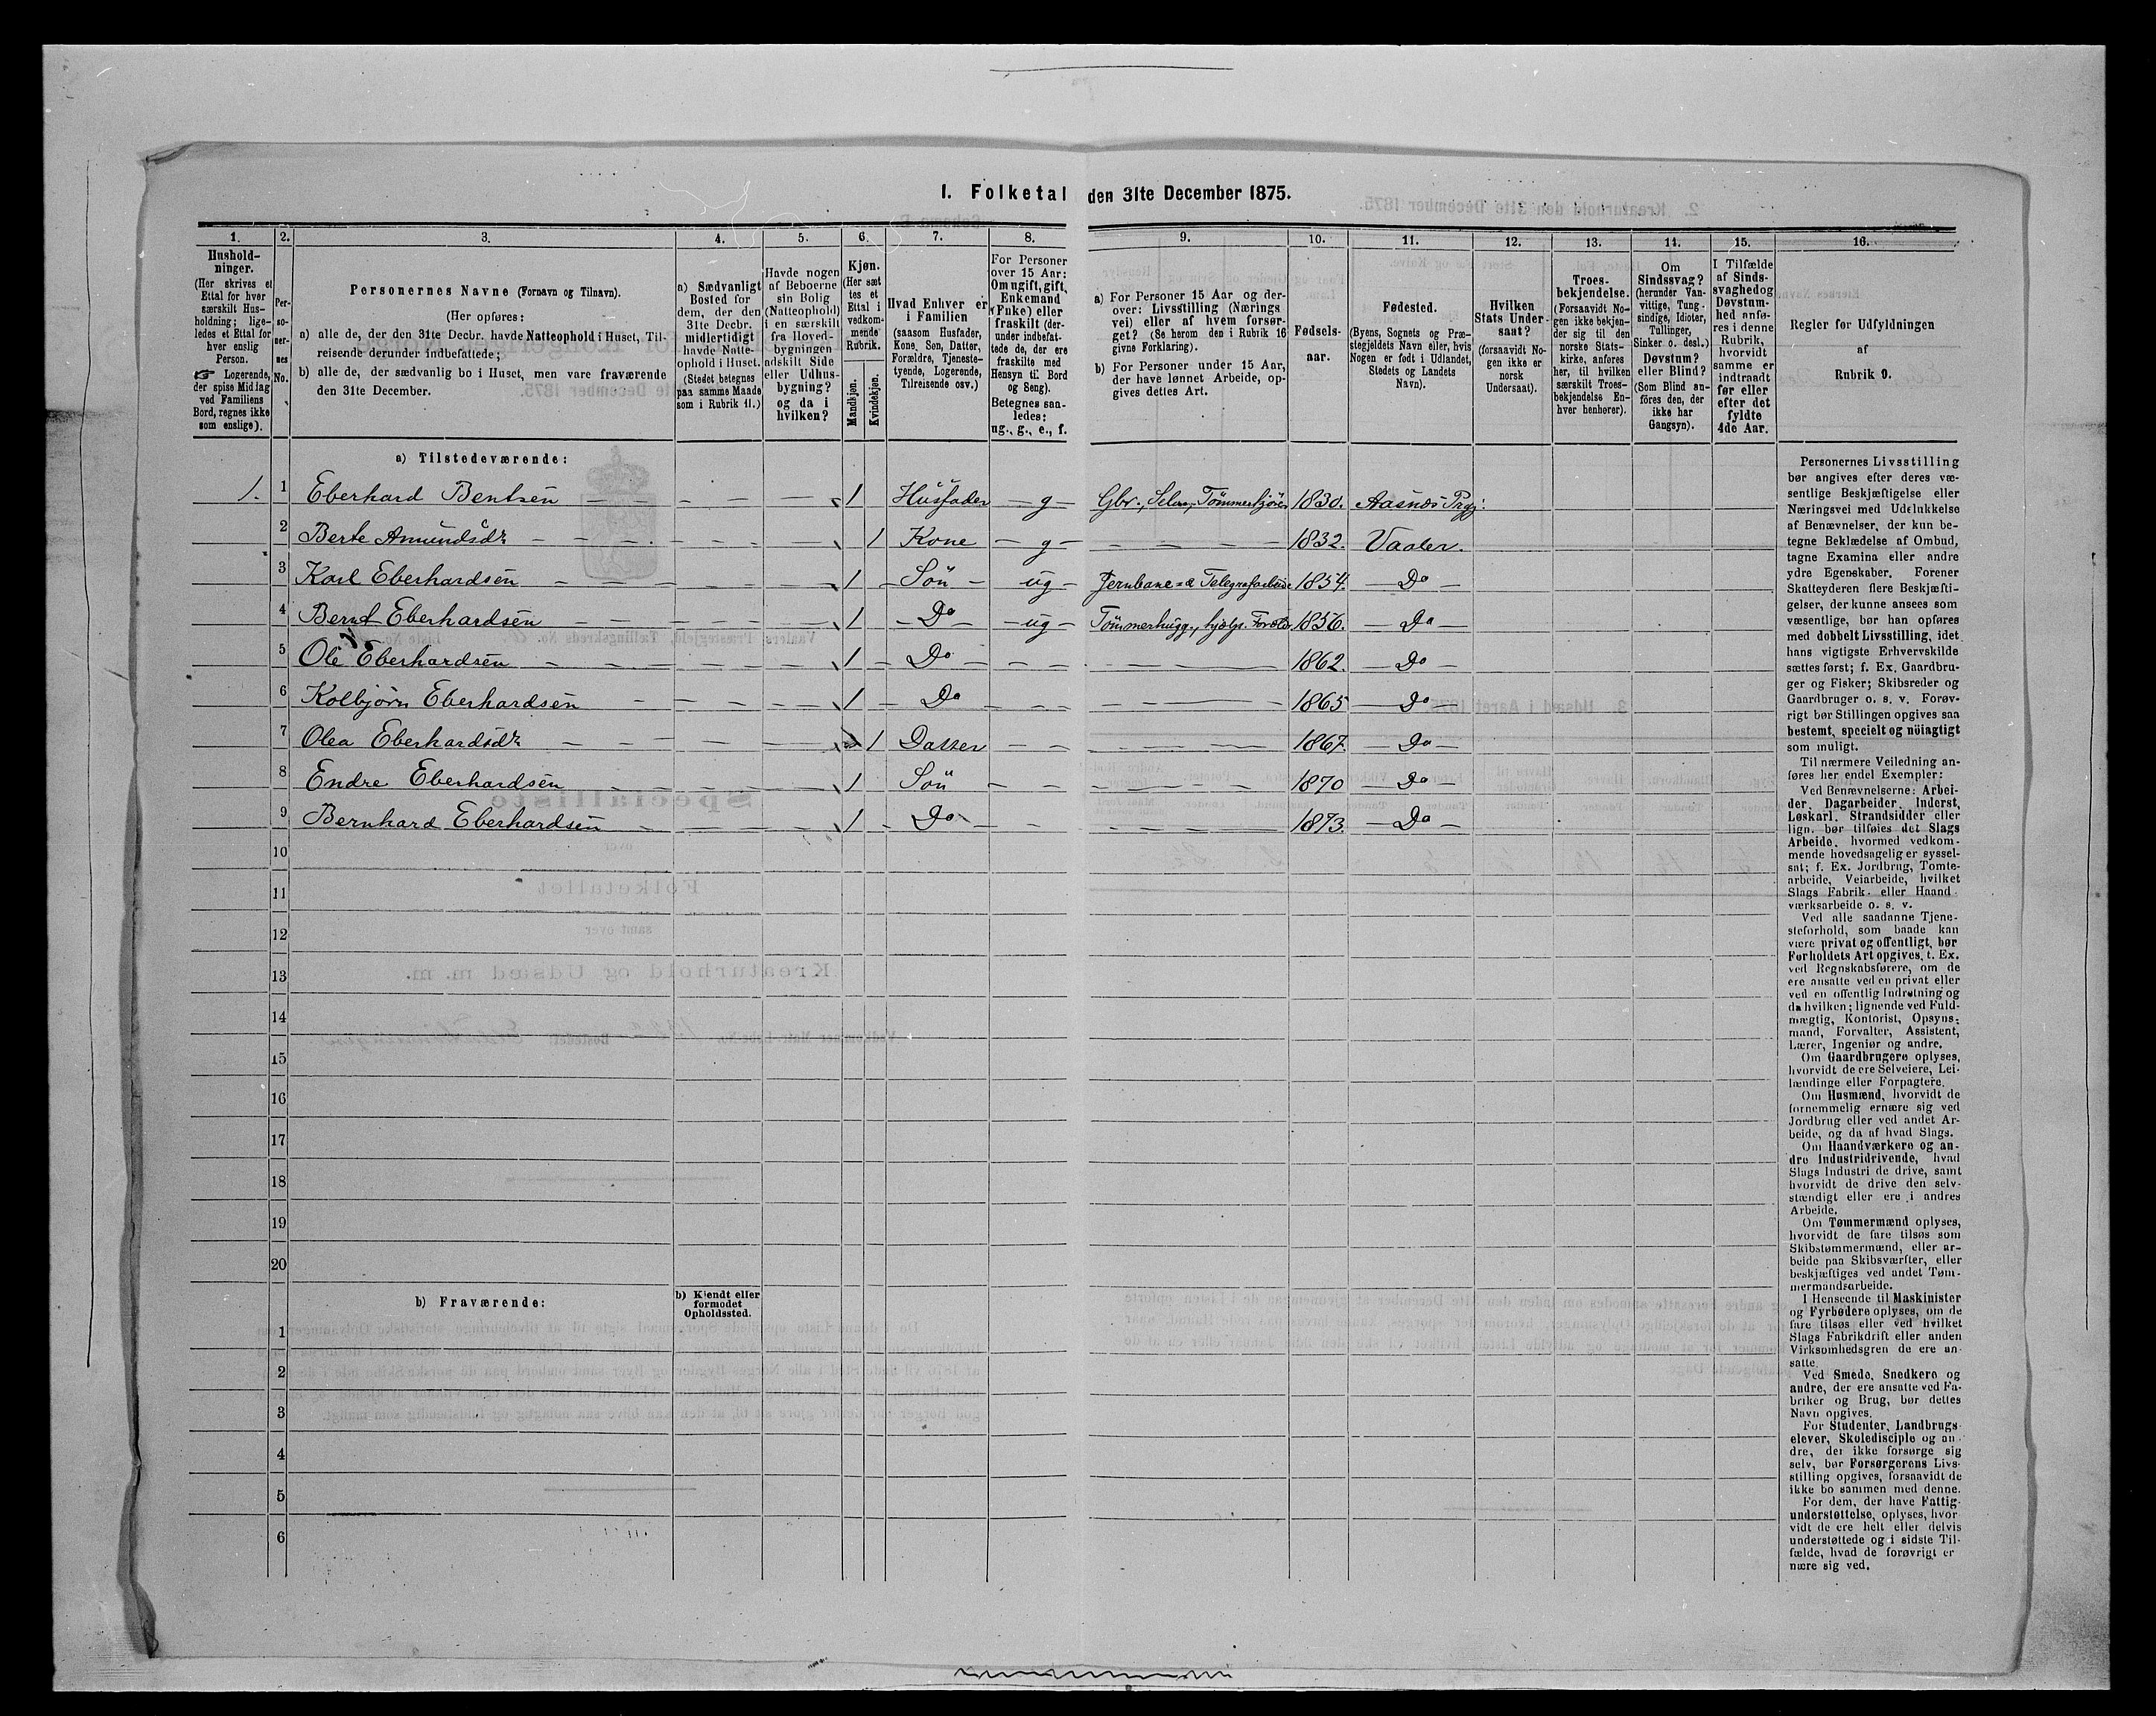 I. Folketal den 31te December 1875.
1. 2. 3. 4. 5. 6. 7. 8. 9. 10. 11. 12. 13. 14. 15. 16.
Hushold-
ninger.
(Her skrives et
Ettal for hver
særskilt Hus-
holdning; lige-
ledes et Ettal for
hver enslig
Person.
☞ Logerende,
der spise Middag
ved Familiens
Bord, regnes ikke
som enslige).
Per-
so-
ner-
nes
No.
Personernes Navne (Fornavn og Tilnavn).
(Her opføres:
a) alle de, der den 31te Decbr. havde Natteophold i Huset, Til-
reisende derunder indbefattede;
b) alle de, der sædvanlig bo i Huset, men vare fraværende
den 31te December.
a) Sædvanligt
Bosted for
dem, der den
31te Decbr.
midlertidigt
havde Natte-
ophold i Huset.
(Stedet betegnes
paa samme Maade
som i Rubrik 11.)
Havde nogen
af Beboerne
sin Bolig
(Natteophold)
i en særskilt
fra Hoved-
bygningen
adskilt Side
eller Udhus-
bygning?
og da i
hvilken?
Kjøn.
(Her sæt
tes et
Ettal i
vedkom-
mende
Rubrik.
Mandkjøn.
Kvindekjøn.
Hvad Enhver er
i Familien
(saasom Husfader,
Kone, Søn, Datter,
Forældre, Tjeneste-
tyende, Logerende,
Tilreisende osv.)
For Personer
over 15 Aar:
Om ugift, gift,
Enkemand
(Enke) eller
fraskilt (der-
under indbefat-
tede de, der ere
fraskilte med
Hensyn til Bord
og Seng).
Betegnes saa-
ledes:
ug., g., e., f.
a) For Personer 15 Aar og der-
over: Livsstilling (Nærings
vei) eller af hvem forsør-
get? (Se herom den i Rubrik 16
givne Forklaring).
b) For Personer under 15 Aar,
der have lønnet Arbeide, op-
gives dettes Art.
Fødsels-
aar.
Fødested.
(Byens, Sognets og Præ-
stegjeldets Navn eller, hvis
Nogen er født i Udlandet,
Stedets og Landets
Navn).
Hvilken
Stats Under-
saat?
(forsaavidt No-
gen ikke er
norsk
Undersaat).
Troes-
bekjendelse.
(Forsaavidt No-
gen ikke bekjen-
der sig til den
norske Stats-
kirke, anføres
her, til hvilken
særskilt Troes-
bekjendelse En-
hver henhører).
Om
Sindssvag?
(herunder Van-
vittige, Tung-
sindige, Idioter,
Tullinger,
Sinker o. desl.)
Døvstum?
eller Blind?
(Som Blind an-
föres den, der
ikke har
Gangsyn).
I Tilfælde
af Sinds-
svaghed og
Døvstum-
hed anfø-
res i denne
Rubrik,
hvorvidt
samme er
indtraadt
før eller
efter det
fyldte
4de Aar.
Regler for Udfyldningen
af
Rubrik 9.
a) Tilstedeværende:
1. 1 Eberhard Bentsen 1 Husfader g Gbr., Selvei, Tømmerkjörer 1830. Aasnæs Prgj:
2 Berte Amundsdr 1 Kone g 1832. Vaaler.
3 Karl Eberhardsen 1 Søn ug Jernbane- & Telegrafarbeide 1854. Do
4 Bernt Eberhardsen 1 Do ug Tömmerhugg., hjælp. Foreldr. 1856. Do
5 Ole Eberhardsen 1 Do 1862. Do
6 Kolbjørn Eberhardsen 1 Do 1865 Do
7 Olea Eberhardsdr 1 Datter 1867. Do
8 Endre Eberhardsen 1 Søn 1870 Do
9 Bernhard Eberhardsen 1 Do 1873. Do
10
11
12
13
14
15
16
17
18
19
20
b) Fraværende:
b) Kjendt eller
formodet
Opholdssted.
1
2
3
4
5
6
Personernes Livsstilling
bør angives efter deres væ-
sentlige Beskjæftigelse eller
Næringsvei med Udelukkelse
af Benævnelser, der kun be-
tegne Beklædelse af Ombud,
tagne Examina eller andre
ydre Egenskaber. Forener
Skatteyderen flere Beskjæfti-
gelser, der kunne ansees som
væsentlige, bør han opføres
med dobbelt Livsstilling, idet
hans vigtigste Erhvervskilde
sættes først; f. Ex. Gaardbru-
ger og Fisker; Skibsreder og
Gaardbruger o. s. v. Forøv-
rigt bør Stillingen opgives saa
bestemt, specielt og nöiagtigt
som muligt.
Til nærmere Veiledning an-
føres her endel Exempler:
Ved Benævnelserne: Arbei-
der, Dagarbeider, Inderst,
Løskarl, Strandsidder eller
lign. bør tilføies det Slags
Arbeide, hvormed vedkom-
mende hovedsagelig er syssel-
sat; f. Ex. Jordbrug, Tomte-
arbeide, Veiarbeide, hvilket
Slags Fabrik- eller Haand-
værksarbeide o. s. v.
Ved alle saadanne Tjene-
steforhold, som baade kan
være privat og offentligt, bør
Forholdets Art opgives, f. Ex.
ved Regnskabsførere, om de
ere ansatte ved en privat eller
ved en offentlig Indretning og
da hvilken; lignende ved Fuld-
mægtig, Kontorist, Opsyns-
mand, Forvalter, Assistent,
Lærer, Ingeniør og andre.
Om Gaardbrugere oplyses,
hvorvidt de ere Selveiere, Lei-
lændinge eller Forpagtere.
Om Husmænd, hvorvidt de
fornemmelig ernære sig ved
Jordbrug eller ved andet Ar-
beide, og da af hvad Slags.
Om Haandværkere og an-
dre Industridrivende, hvad
Slags Industri de drive, samt
hvorvidt de drive den selv-
stændigt eller ere i andres
Arbeide.
Om Tømmermænd oplyses,
hvorvidt de fare tilsøs som
Skibstømmermænd, eller ar-
beide paa Skibsværfter, eller
beskjæftiges ved andet Tøm-
mermandsarbeide.
I Henseende til Maskinister
og Fyrbødere oplyses, om de
fare tilsøs eller ved hvilket
Slags Fabrikdrift eller anden
Virksomhedsgren de ere an-
satte.
Ved Smede, Snedkere og
andre, der ere ansatte ved Fa-
briker og Brug, bør dettes
Navn opgives.
For Studenter, Landbrugs
elever, Skoledisciple og an-
dre, der ikke forsørge sig
selv, bør Forsørgerens Livs-
stilling opgives, forsaavidt de
ikke bo sammen med denne.
For dem, der have Fattig-
understøttelse, oplyses, hvor-
vidt de ere helt eller delvis
understøttede og i sidste Til-
fælde, hvad de forøvrigt er-
nære sig ved.